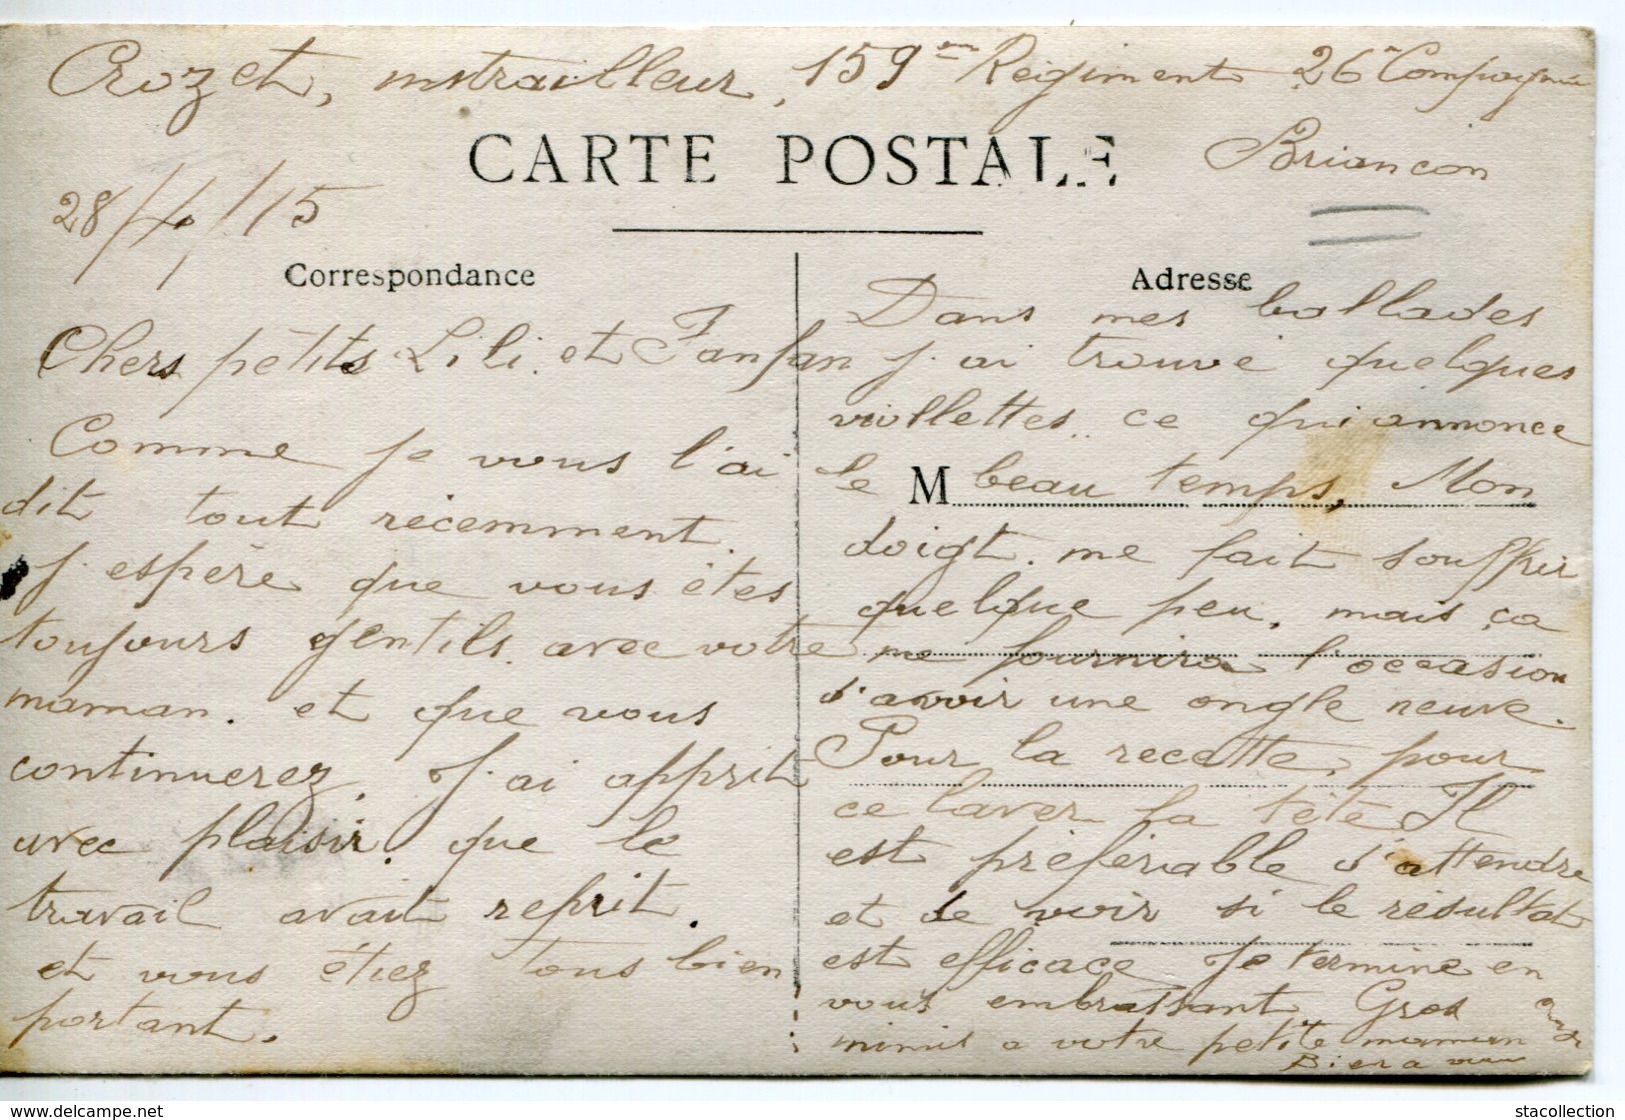 Crozet, mitrailleur, 159em Regiment 26e Compagnie
Briancon
CARTE POSTALE
28/4/15
Correspondance
Chers petits Lili. et Fanfan
Comme je vous l'ai
dit tout récemment.
J'espère que vous êtes
toujours gentils. avec votre
maman. et que vous
continuerez. J'ai apprit
avec plaisir. que le
travail avait reprit.
et vous étiez tous bien
portant.
Adresse
Dans mes ballades
j'ai trouve quelques
viollettes.. ce qui annonce
le M beau temps, Mon
doigt. me fait souffrir
quelque peu. mais ça
me fournira l'occasion
d'avoir une ongle neuve.
Pour la recette, pour
ce laver la tête Il
est préferiable d'attendre
et de voir si le résultat
est efficace Je termine en
vous embrassant Gros
mimis a votre petite maman
Bien a vous
stacollection